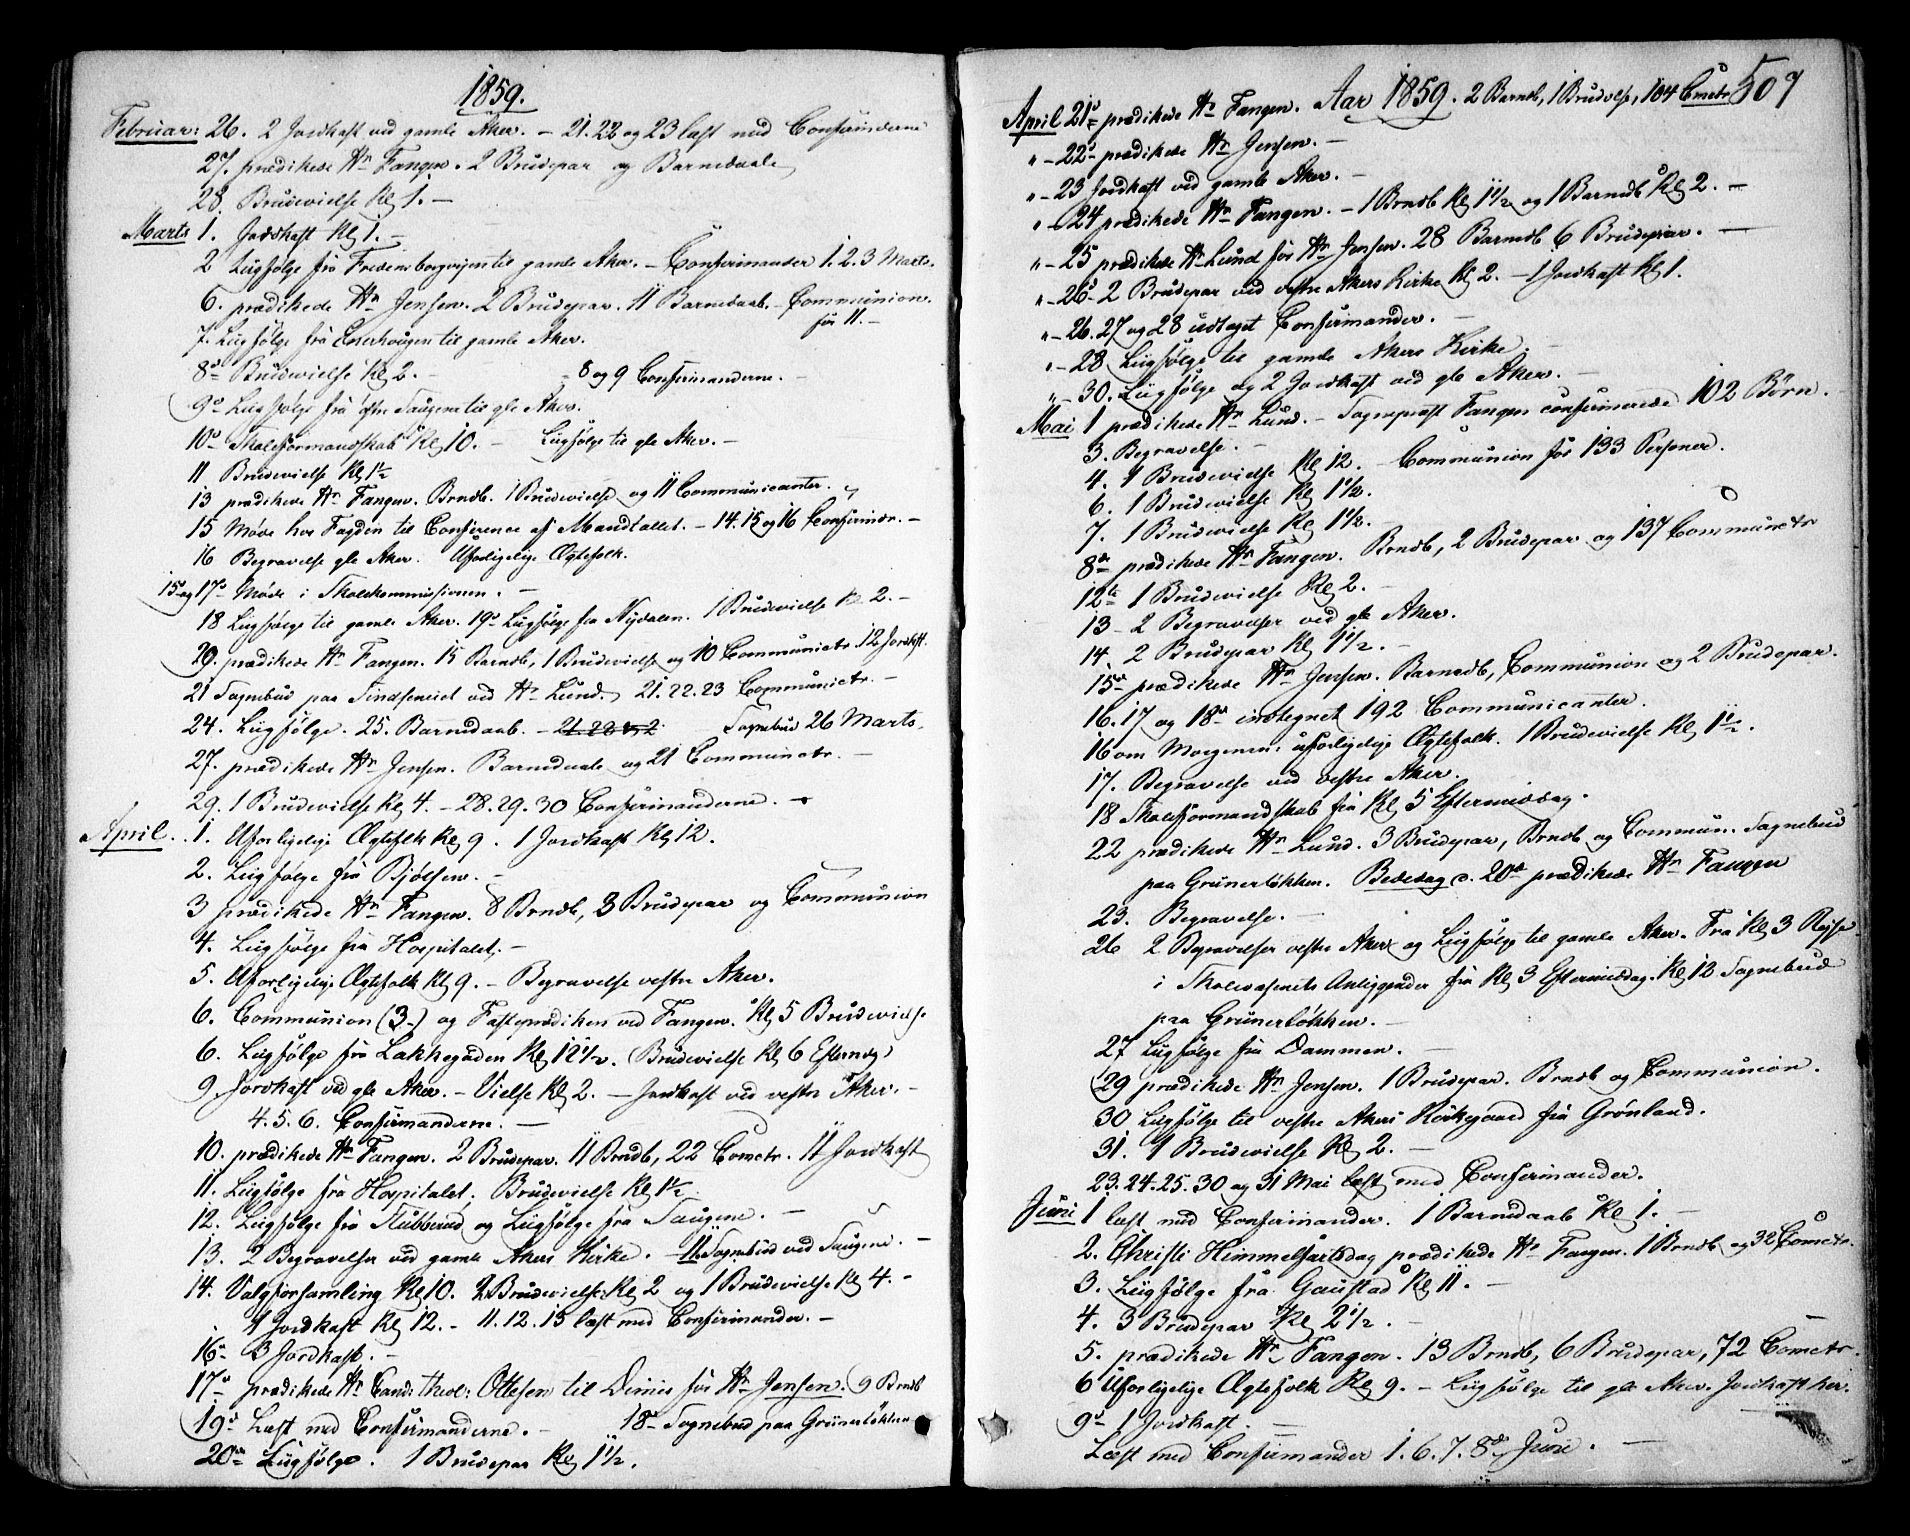 1859.
Februar: 26. 2 Jordkast ved gamle Aker. – 21. 22 og 23 læst med Confirmanderne
27. prædikede Hr Fangen. 2 Brudepar og Barnedaab
28. Brudevielse Kl 1. –
Marts 1. Jordkast Kl 1. –
2 Liigfølge fra Fredensborgveien til gamle Aker. – Confirmander 1. 2. 3 Marts.
6. prædikede Hr Jensen. 2 Brudepar. 11 Barnedaab. – Communion
for 11. –
7. Liigfølge fra Enerhougen til gamle Aker.
8de Brudevielse Kl 2. – 8 og 9 Confirmanderne. –
9de Liigfølge fra Saugene til gle Aker.
10de Skoleformandskab Kl 10. – Liigfølge til gle Aker. –
11 Brudevielse Kl 1½
13 prædikede Hr Fangen. Brndb. 1 Brudevielse og 11 Communicanter.
15 Møde hos Fogden til Conference af Mandtallet. – 14. 15 og 16 Confirmdr. –
16 Begravelse gle Aker. Uforligelige Ægtefolk.
15 og 17de Møde i Skolekommissionen. –
18 Liigfølge til gamle Aker. 19de Liigfølge fra Nydalen. 1 Brudevielse Kl 2. –
20. prædikede Hr Fangen. 15 Barndb, 1 Brudevielse og 10 Communictr. 12 Jordkst.
21 Sognebud paa Tindseneiet ved Hr Lund. 21. 22. 23 Communictr. –
24. Liigfølge. 25. Barnedaab. – Sognebud 26 Marts.
27. prædikede Hr Jensen. Barnedaab og 21 Communictr. –
29. 1 Brudevielse Kl 4. – 28. 29. 30 Confirmanderne. –
April. 1. Uforligelige Ægtefolk Kl 9. 1 Jordkast Kl 12.
2. Liigfølge fra Bjølsen. –
3 prædikede Hr Fangen. 8 Brndb, 3 Brudepar og Communion
4. Liigfølge fra Hospitalet. –
5. Uforligelige Ægtefolk Kl 9. – Begravelse vestre Aker.
6. Communion (3.) og Fasteprædiken ved Fangen. Kl 5 Brudevielse
6. Liigfølge fra Lakkegaden Kl 12½. (Brudevielse Kl 6 Eftermdg)
9. Jordkast ved gle Aker. – Vielse Kl 2. – Jordkast ved vestre Aker. –
4. 5. 6. Confirmanderne. –
10. prædikede Hr Fangen. 2 Brudepar. 11 Brndb, 22 Cometr. 11 Jordkast
11. Liigfølge fra Hospitalet. Brudevielse Kl 1½
12. Liigfølge fra Stubberud og Liigfølge fra Saugene. –
13. 2 Begravelser ved gamle Akers Kirke. – 11. Sognebud ved Saugene. –
14. Valgforsamling Kl 10. 2 Brudevielse Kl 2 og 1 Brudevielse Kl 4. –
1 Jordkast Kl 12. – 11. 12. 13 læst med Confirmander. –
16de 3 Jordkast. –
17de prædikede Hr Candi. theol: Ottesen til Dimis for Hr Jensen. 9 Brndb
19de Læst med Confirmanderne. – 18de Sognebud paa Grünerløkken
20de Liigfølge. 1 Brudepar Kl 1½.
507
April 21de prædikede Hr Fangen. Aar 1859. 2 Barndb, 1 Brudvlse, 104 Cmctr
" – 22de prædikede Hr Jensen. –
" – 23 Jordkast ved gamle Aker. –
" – 24 prædikede Hr Fangen. – 1 Brndb Kl 1½ og 1 Barndb Kl 2. –
" – 25 prædikede Hr Lund for Hr Jensen. 28 Barndb 6 Brudepar. –
" – 26de 2 Brudepar ved vestre Akers Kirke Kl 2. – 1 Jordkast Kl 1.
" – 26. 27 og 28 udtaget Confirmander. –
" – 28 Liigfølge til gamle Akers Kirke. –
" – 30. Liigfølge og 2 Jordkast ved gle Aker. –
Mai 1 prædikede Hr Lund. – Sognepræst Fangen confirmerede 102 Børn.
3. Begravelse. –
4. 1 Brudevielse Kl 12. – Communion for 133 Personer.
6. 1 Brudevielse Kl 1½.
7. 1 Brudevielse Kl 1½. –
8de prædikede Hr Fangen. Brndb, 2 Brudepar og 137 Communctr
12te 1 Brudevielse Kl 2. –
13 – 2 Begravelser ved gle Aker.
14. 2 Brudepar Kl 1½. –
15de prædikede Hr Jensen. Barnedb, Communion og 2 Brudepar.
16. 17 og 18de indtegnet 192 Communicanter.
16 om Morgenen: uforligelige Ægtefolk. 1 Brudevielse Kl 1½.
17. Begravelse ved vestre Aker.
18 Skoleformandskab fra Kl 5 Eftermiddag.
22 prædikede Hr Lund. 3 Brudepar, Brndb og Commun. Sognebud
paa Grünerløkken. Bededag d. 20de prædikede Hr Fangen
23. Begravelse. –
26 2 Begravelser vestre Aker og Liigfølge til gamle Aker. Fra Kl 3 Rejse
i Skolevæsenets Anliggender fra Kl 3 Eftermiddag. Kl 12 Sognebud
paa Grünerløkken. –
27 Liigfølge fra Dammen. –
29 prædikede Hr Jensen. 1 Brudepar. Brndb og Communion.
30 Liigfølge til vestre Akers Kirkegaard fra Grønland.
31. 1 Brudevielse Kl 2. –
23. 24. 25. 30 og 31 Mai læst med Confirmander.
Juni 1 læst med Confirmander. 1 Barnedaab Kl 1. –
2. Christi Himmelfartsdag prædikede Hr Fangen. 1 Brndb og 32 Cometr.
3. Liigfølge fra Gaustad Kl 11. –
4. 3 Brudepar Kl 2½. –
5. prædikede Hr Fangen. 13 Brndb, 6 Brudepar, 72 Cometr.
6 Uforligelige Ægtefolk Kl 9. – Liigfølge til gle Aker. Jordkast her.
9de 1 Jordkast. –
Læst med Confirmander 1. 6. 7. 8de Juni. –